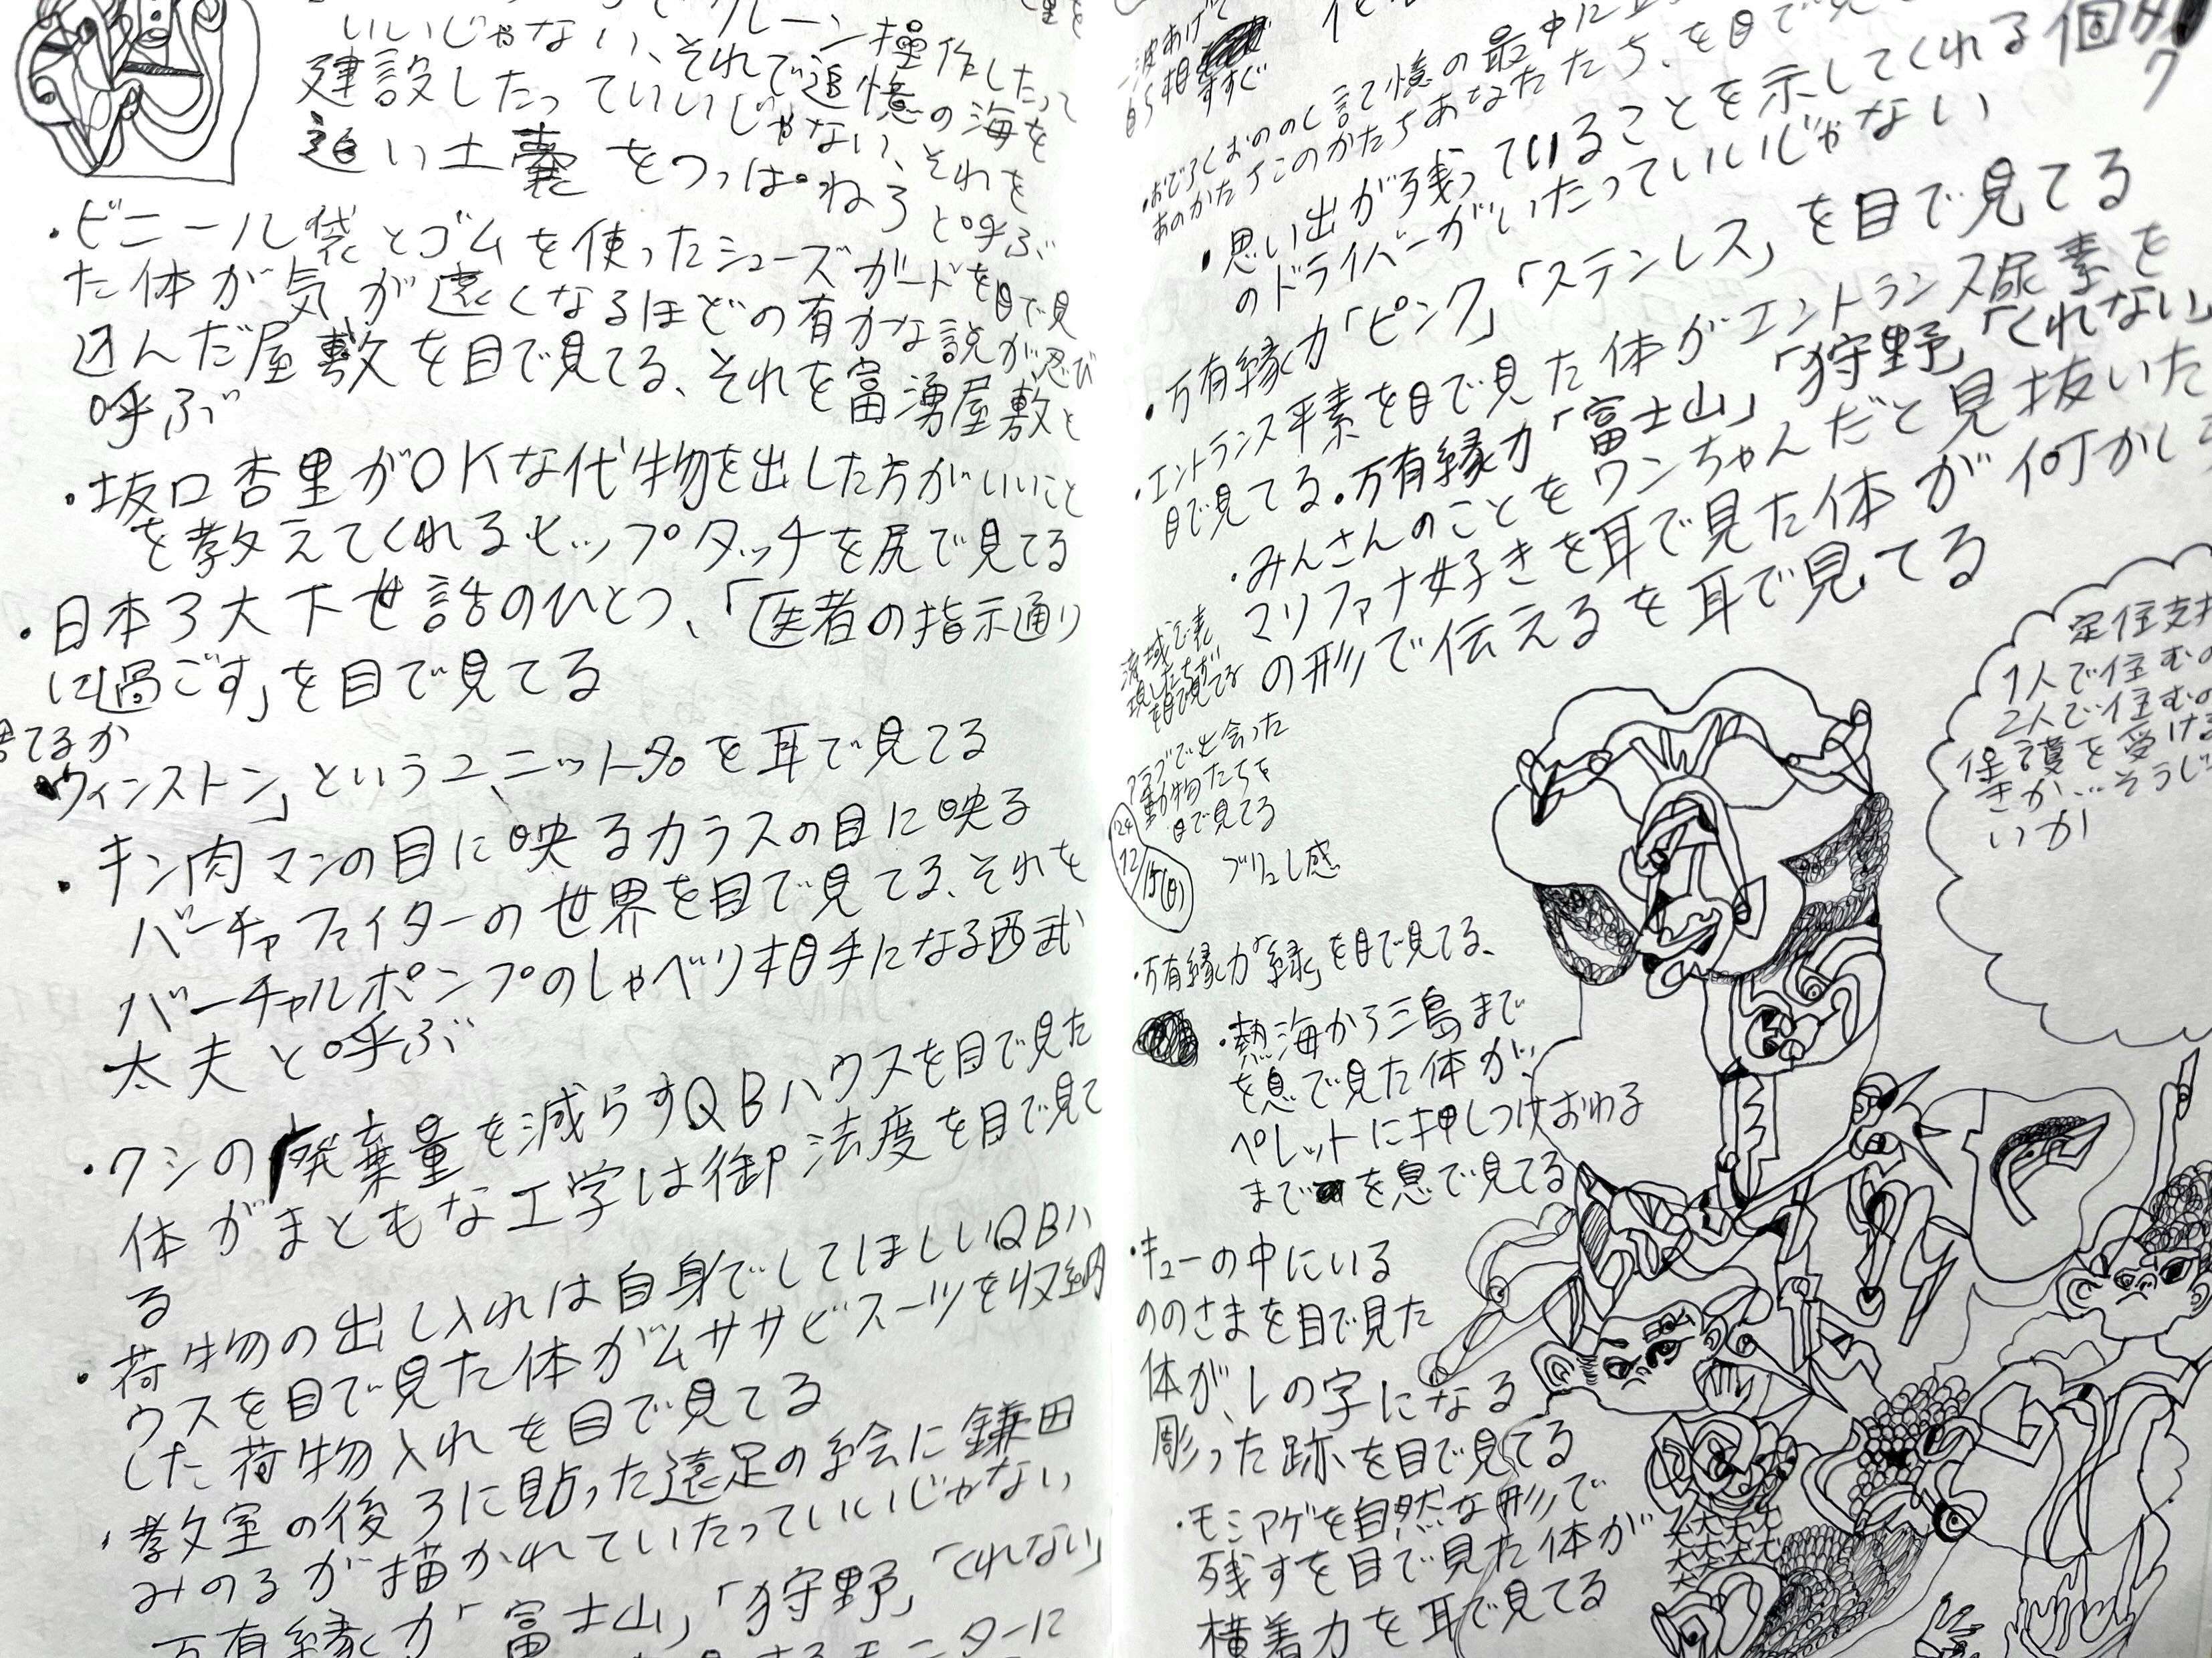 いいじゃない、それで追憶の海を
建設したっていいじゃない、それを
追い土嚢をつっぱねろと呼ぶ
・ビニール袋とゴムを使ったシューズガードを目で見
た体が気が遠くなるほどの有力な説が忍び
込んだ屋敷を目で見てる、それを富湧屋敷と
呼ぶ
・坂口杏里がOKな代物を出した方がいいこと
を教えてくれるヒップタッチを尻で見てる
・日本3大下世話のひとつ、「医者の指示通り
に過ごす」を目で見てる
てるか
ウィンストン」というユニット名を耳で見てる
・キン肉マンの目に映るカラスの目に映る
バーチャファイターの世界を目で見てる、それを
バーチャルポンプのしゃべり相手になる西武
太夫と呼ぶ
・クシの廃棄量を減らすQBハウスを目で見た
体がまともな工学は御法度を目で見て
る
・荷物の出し入れは自身でしてほしいQBハ
ウスを目で見た体がムササビスーツを収納
した荷物入れを目で見てる
・教室の後ろに貼った遠足の絵に鎌田
みのるが描かれていたっていいじゃない
万有縁力「富士山」「狩野」「くれない」
モニターに
あのかた
このかたちあなたたち、を目で見
・思い出が残っていることを示してくれる個
のドライバーがいたっていいじゃない
・万有縁力「ピンク」「ステンレス」を目で見てる
・エントランス平素を目で見た体がエントランス尿素を
目で見てる・万有縁力「富士山」「狩野」「くれない」
・みんさんのことをワンちゃんだと見抜いた
マリファナ好きを耳で見た体が何かし
の形で伝えるを耳で見てる
流域で表
現したちがい
を目で見てる
クラブで出会った
動物たちを
目で見てる
'24
12/15(日)
ブリュレ感
定住支
1人で住むの
2人で住むの
保護を受ける
きか…そうじ
いか
・万有縁力「縁」を目で見てる、
・熱海から三島まで
を息で見た体が、
ペレットに押しつけおわる
までを息で見てる
・キューの中にいる
ののさまを目で見た
体が、しの字になる
彫った跡を目で見てる
・モミアゲを自然な形で
残すを目で見た体が
横着力を耳で見てる
大大大大
大大大大